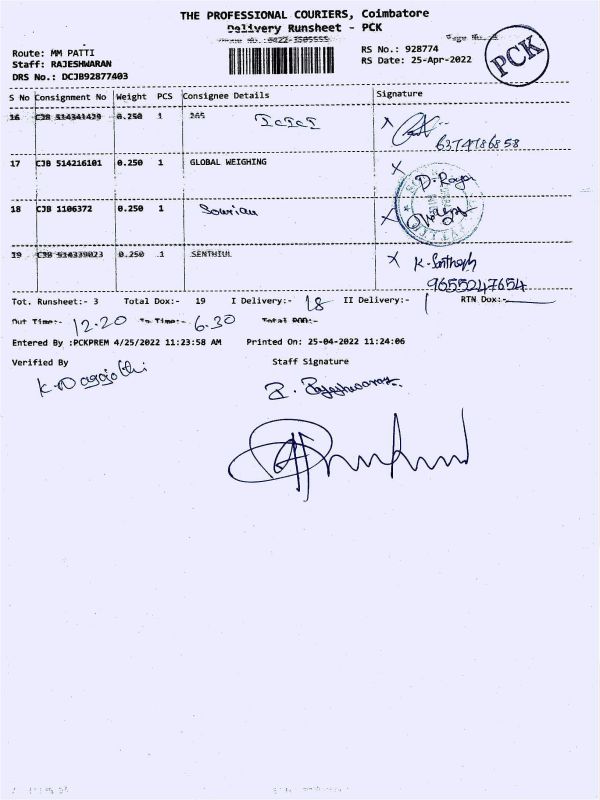 THE PROFESSIONAL COURIERS, Coimbatore
Delivery Runsheet - PCK
Route: MM PATTI
Staff: RAJESHWARAN
DRS No.: DCJB92877403
RS No.: 928774
RS Date: 25-Apr-2022
PCK
S No Consignment No Weight PCS Consignee Details Signature
16 CJB 514341429 0.250 1 265 ICICI
6374786858
17 CJB 514216101 0.250 1 GLOBAL WEIGHING
18 CJB 1106372 0.250 1
19 CJB 514339023 0.250 1 SENTHIUL
9655247654
Tot. Runsheet:- 3 Total Dox:- 19 I Delivery:- 18 II Delivery:- 1 RTN Dox:-
Out Time:- 12.20 In Time:- 6.30 Total POD:-
Entered By :PCKPREM 4/25/2022 11:23:58 AM Printed On: 25-04-2022 11:24:06
Verified By Staff Signature